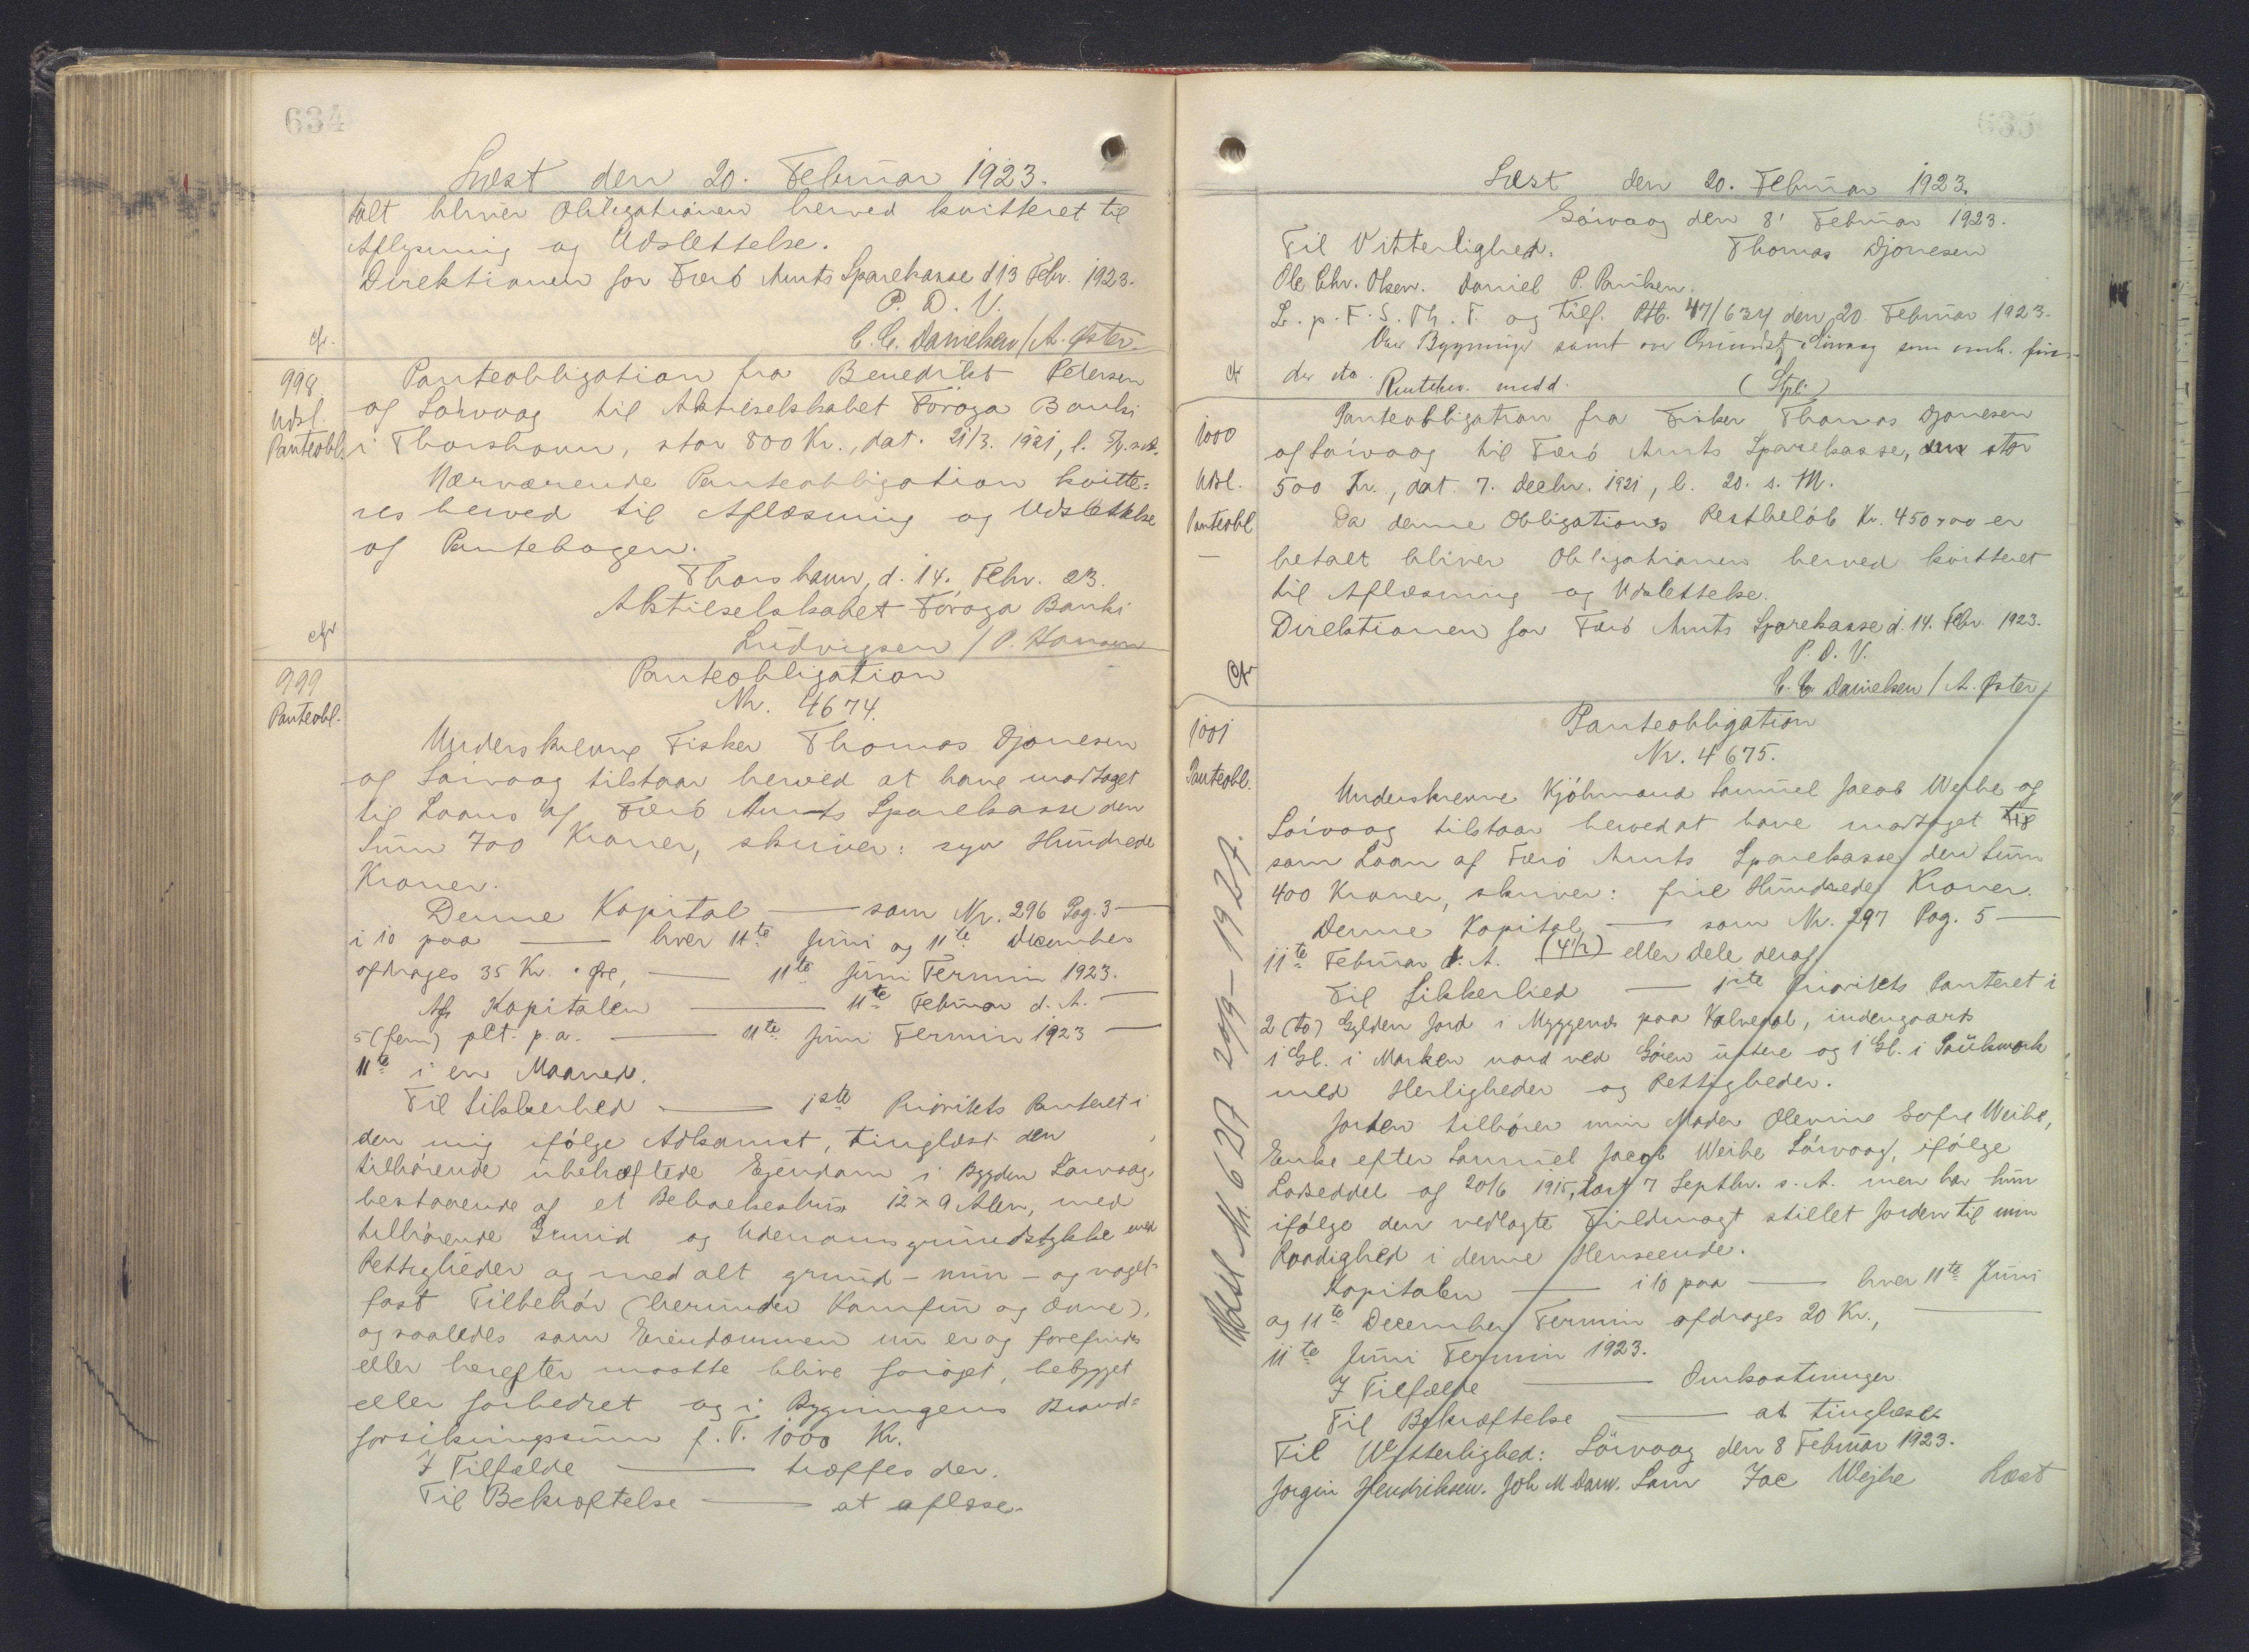 634
Læst den 20. Februar 1923.
talt bliver Obligationen herved kvitteret til
Aflysning og Udslettelse.
Direktionen for Færö Amts Sparekasse d 13 Febr. 1923.
P. D. V.
C. C. Danielsen / A. Øster.
cfr.
998
Udsl.
Panteobl.
Panteobligation fra Benedikt Petersen
af Sörvaag til Aktieselskabet Föroya Banki
i Thorshavn, stor 800 Kr., dat. 21/3. 1921, l.
Nærværende Panteobligation kvitte=
res herved til Aflæsning og Udslettelse
af Pantebogen.
Thorshavn, d. 14. Febr. 23.
Aktieselskabet Föroya Banki
Ludvigsen / P. Hansen
cfr
999
Panteobl.
Panteobligation
Nr. 4674.
Underskrevne Fisker Thomas Djonesen
af Sörvaag tilstaar herved at have modtaget
til Laans af Færö Amts Sparekasse den
Sum 700 Kroner, skriver: syv Hundrede
Kroner.
Denne Kapital — som Nr. 296 Pag. 3 —
i 10 paa — hver 11te Juni og 11te December
afdrages 35 Kr. " Øre, — 11te Juni Termin 1923.
Af Kapitalen — 11te Februar d. A. —
5 (fem) pCt. p. a. — 11te Juni Termin 1923 —
11te i en Maaned.
Til Sikkerhed — 1ste Prioritets Panteret i
den mig ifølge Adkomst, tinglæst den ,
tilhörende ubehæftede Ejendom i Bygden Sörvaag,
bestaaende af et Beboelseshus 12 x 9 Alen, med
tilhörende Grund og Udenomsgrundstykke med
Rettigheder og med alt grund- mur- og nagel-
fast Tilbehör (herunder Komfur og Ovne),
og saaledes som Ejendommen nu er og forefindes
eller herefter maatte blive foröget, bebygget
eller forbedret og i Bygningens Brand=
forsikringssum f. T. 1000 Kr.
I Tilfælde — træffes der.
Til Bekræftelse — at aflæse.
635
Læst den 20. Februar 1923.
Sörvaag den 8' Februar 1923.
Til Vitterlighed. Thomas Djonesen
Ole Chr. Olsen. Daniel P. Paulsen.
L. p. F. S. Th. T. og tilf. Ptb. 47/634 den 20 Februar 1923.
Bygninger samt Grundst. i Sörvaag som omh. fin-
des
Rentekv. medd. (Stpl.)
cfr
1000
Udsl.
Panteobl
—
Panteobligation fra Fisker Thomas Djonesen
af Sörvaag til Færö Amts Sparekasse, den stor
500 Kr., dat. 7. Decbr. 1921, l. 20. s. M.
Da denne Obligations Restbelöb Kr. 450 00 er
betalt bliver Obligationen herved kvitteret
til Aflæsning og Udslettelse.
Direktionen for Færö Amts Sparekasse d. 14. Febr 1923.
P. D. V.
C. C. Danielsen / A. Øster.
cfr
1001
Panteobl.
Udsl. Nr. 627 20/9-1927.
Panteobligation
Nr. 4675.
Underskrevne Kjöbmand Samuel Jacob Weihe af
Sörvaag tilstaar herved at have modtaget til
som Laan af Færö Amts Sparekasse den Sum
400 Kroner, skriver: fire Hundrede Kroner.
Denne Kapital — som Nr. 297 Pag. 5 —
11te Februar d. A. (4½) eller Dele deraf
Til Sikkerhed — 1ste Prioritets Panteret i
2 (to) Gylden Jord i Myggenæs paa Kalvedal, indengaards
1 Gl. i Marken nord ved Gáen ustere og 1 Gl. i
med Herligheder og Rettigheder.
Jorden tilhører min Moder Olevine Sofie Weihe,
Enke efter Samuel Jacob Weihe Sörvaag, ifölge
Lodseddel af 20/6 1915, læst 7 Septbr. s. A. men har hun
ifölge den vedlagte Fuldmagt stillet Jorden til min
Raadighed i denne Henseende.
Kapitalen — i 10 paa — hver 11te Juni
og 11te December Termin afdrages 20 Kr., —
11te Juni Termin 1923.
I Tilfælde — Omkostninger
Til Bekræftelse — at tinglæse
Til Vitterlighed: Sörvaag den 8 Februar 1923.
Jorgin Hendriksen. Joh M Dam. Sam Jac Wejhe Læst